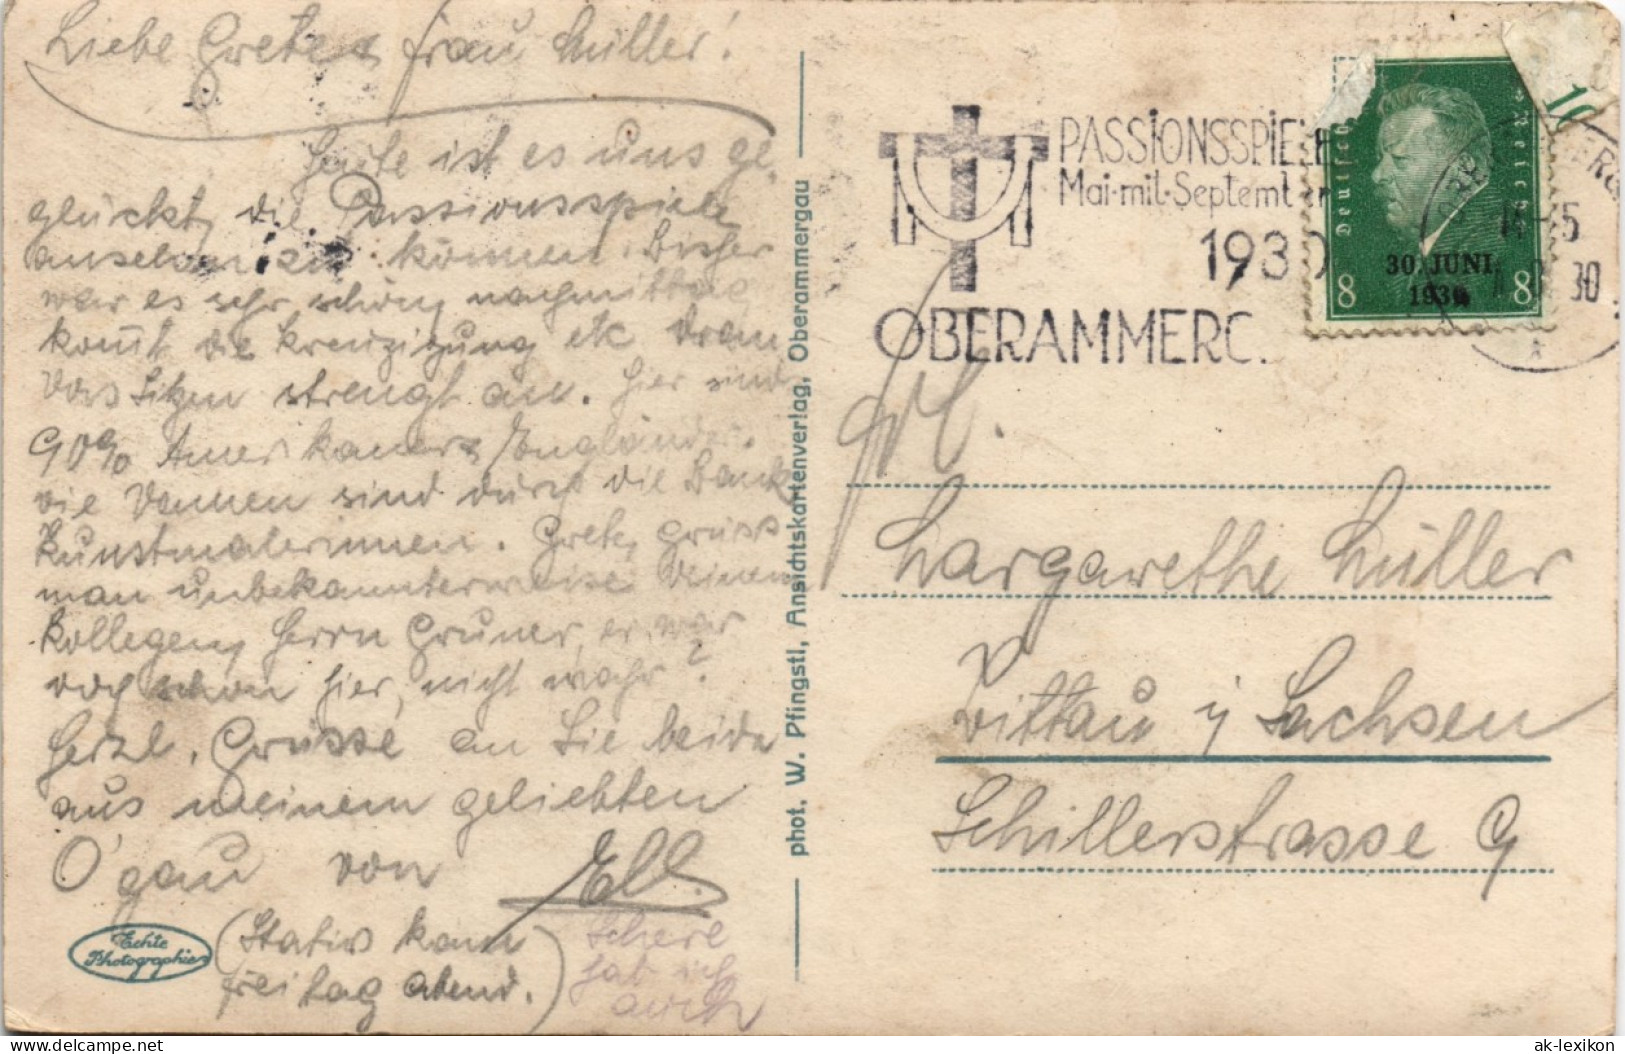 Liebe Grete u. Frau Müller!
Heute ist es uns ge-
glückt, die Passionsspiele
anschauen zu können. Bisher
war es sehr schön, nachmittag
kommt die Kreuzigung etc dran.
Das Sitzen strengt an. Hier sind
90% Amerikaner u. Engländer.
die Damen sind durch die Bank
Kunstmalerinnen. Grete, grüss
man unbekannterweise Deinen
Kollegen, Herrn Gruner, er war
doch schon hier, nicht wahr?
Herzl. Grüsse an Sie beide
aus meinem geliebten
O'gau von Ell.
(Stativ kann
Freitag abend.)
Schere
hab ich
auch
Echte
Photographie
phot. W. Pfingstl, Ansichtskartenverlag, Oberammergau
PASSIONSSPIELE
Mai-mit-September
1930
OBERAMMERG.
Deutsches Reich
30. JUNI
1930
8 8
10
30
Frl.
Margarethe Müller
Zittau i/ Sachsen
Schillerstrasse 9
ak-lexikon